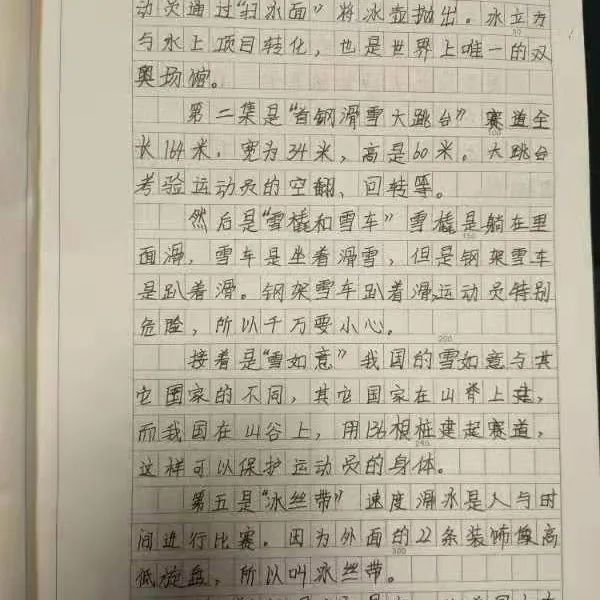 动员通过“扫水面”将冰壶抛出。水立方
与水上项目转化，也是世界上唯一的双
奥场馆。
第二集是“首钢滑雪大跳台”赛道全
长164米，宽为34米，高是60米。大跳台
考验运动员的空翻、回转等。
然后是“雪橇和雪车”雪橇是躺在里
面滑，雪车是坐着滑雪，但是钢架雪车
是趴着滑。钢架雪车趴着滑，运动员特别
危险，所以千万要小心。
200
接着是“雪如意”我国的雪如意与其
它国家的不同，其它国家在山脊上建，
而我国在山谷上，用136根桩建起赛道，
这样可以保护运动员的身体。
第五是“冰丝带”速度滑冰是人与时
间进行比赛。因为外面的22条装饰像高
300
低旋盘，所以叫冰丝带。